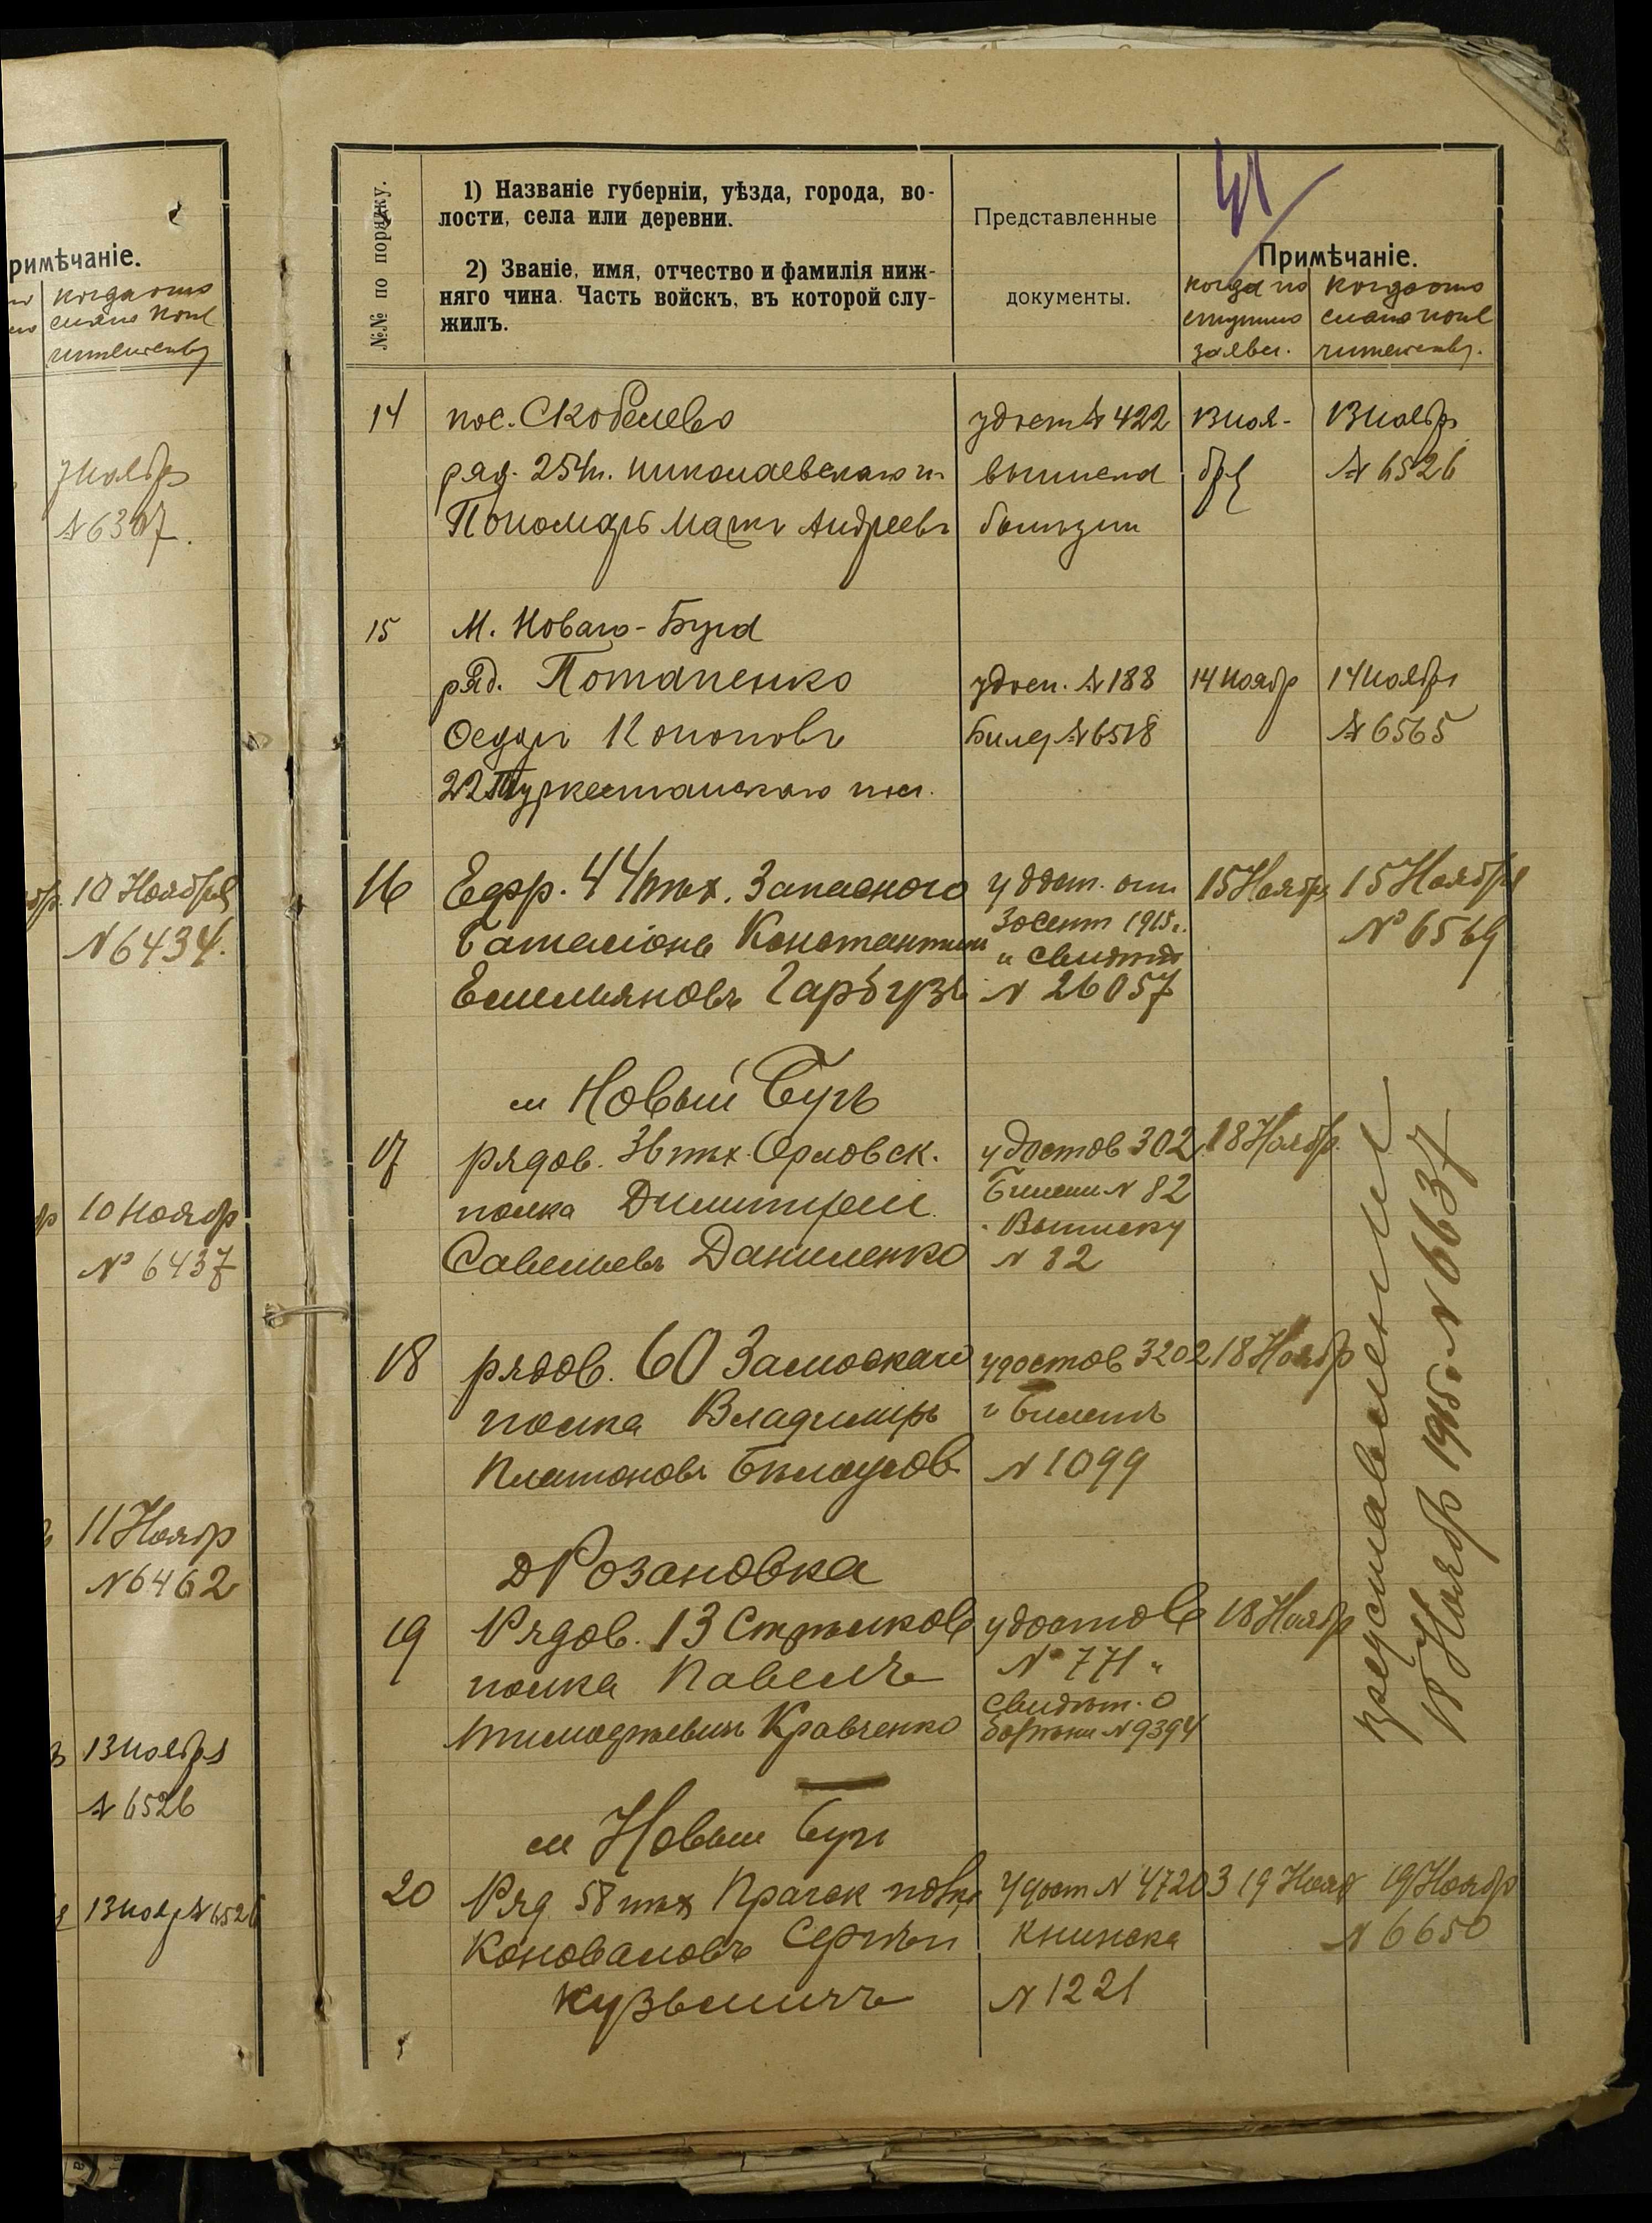 римѣчаніе.
когда оно
7 Ноябр
№ 6307.
10 Ноября
№ 6434.
10 Ноябр
№ 6437
11 Ноябр
№ 6462
13 Ноября
№ 6526
13 Нояб № 6526
41
№№ по порядку.
1) Названіе губерніи, уѣзда, города, во-
лости, села или деревни.
2) Званіе, имя, отчество и фамилія ниж-
няго чина. Часть войскъ, въ которой слу-
жилъ.
Представленные
документы.
Примѣчаніе.
когда по
ступило
заявл.
когда оно
14
пос. Скобелево
ряд. 254п. Николаевскаго п.
Пономарь Андреевъ
удост № 422
13 ноя-
бр
13 Ноябр
№ 6526
15
М. Новаго-Буга
ряд. Потапенко
Кононовъ
22 Туркестанскаго
удост. № 188
Билет № 6518
14 Ноябр
14 Ноября
№ 6565
16
Ефр. 44 пѣх. Запасного
баталіона Константин
Емельяновъ Гарбузъ
удост. отъ
30 сент 1915 г.
и свидѣт
№ 26057
15 Ноября
15 Ноября
№ 6569
м Новый Бугъ
17
рядов. 36 пѣх. Орловск.
полка Димитрій
Савельевъ Даниленко
удостов 302
билет № 82
Выписку
№ 82
18 Ноябр.
18
рядов. 60 Замоскаго
полка Владиміръ
Платоновъ Бѣлоусов
удостов 3202
и билетъ
№ 1099
18 Ноябр
д Розановка
19
Рядов. 13 Стрѣлков
полка Павелъ
Тимофѣевичъ Кравченко
удостов
№ 771 и
свидѣт. о
болѣзни № 9394
18 Ноябр
Представлены
18 Ноябр 1915 г. № 6637
м Новый Буг
20
Ряд 58 пѣх Прагск полка
Коновановъ Сергѣй
Кузьмичъ
Удост № 47203
книжка
№ 1221
19 Нояб
19 Ноябр
№ 6650